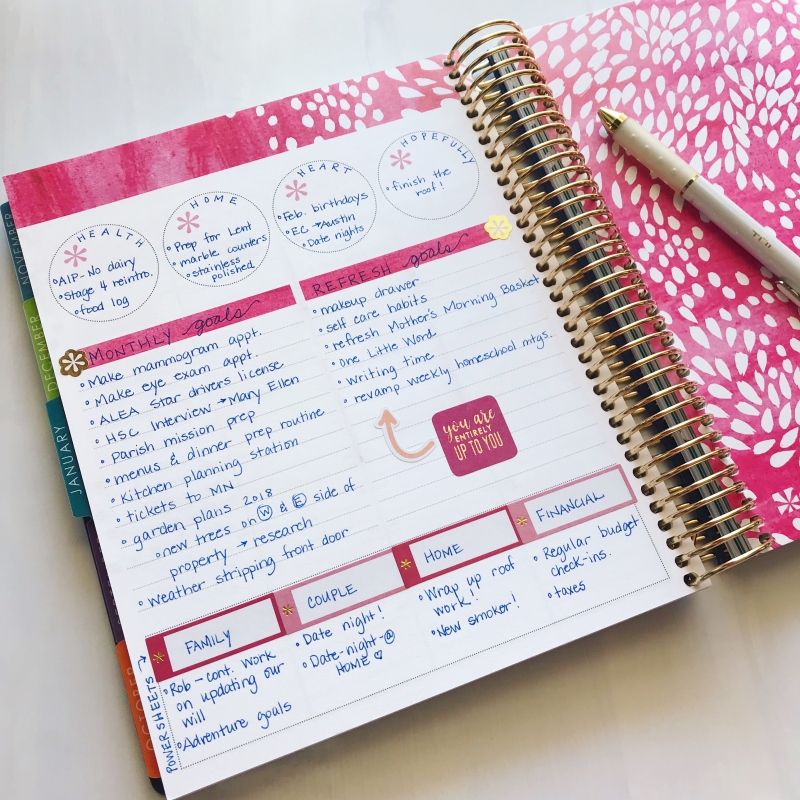 HEALTH
AIP-No dairy
Stage 4 reintro.
food log
HOME
Prep for Lent
marble counters
stainless
polished
HEART
Feb. birthdays
EC → Austin
Date nights
HOPEFULLY
finish the
roof!
MONTHLY goals
Make mammogram appt.
Make eye exam appt.
ALEA Star drivers license
HSC Interview → Mary Ellen
Parish mission prep
menus & dinner prep routine
Kitchen planning station
tickets to MN
garden plans 2018
new trees on W & E side of
property → research
weather stripping front door
REFRESH goals
makeup drawer
self care habits
refresh Mother's Morning Basket
One Little Word
writing time
revamp weekly homeschool mtgs.
you are
ENTIRELY
UP TO YOU
POWERSHEETS →
FAMILY
Rob - cont. work
on updating our
will
Adventure goals
COUPLE
Date night!
Date-night-@
HOME ♡
HOME
Wrap up roof
work!!
New smoker!
FINANCIAL
Regular budget
check-ins.
taxes
NOVEMBER
DECEMBER
JANUARY
OCTOBER